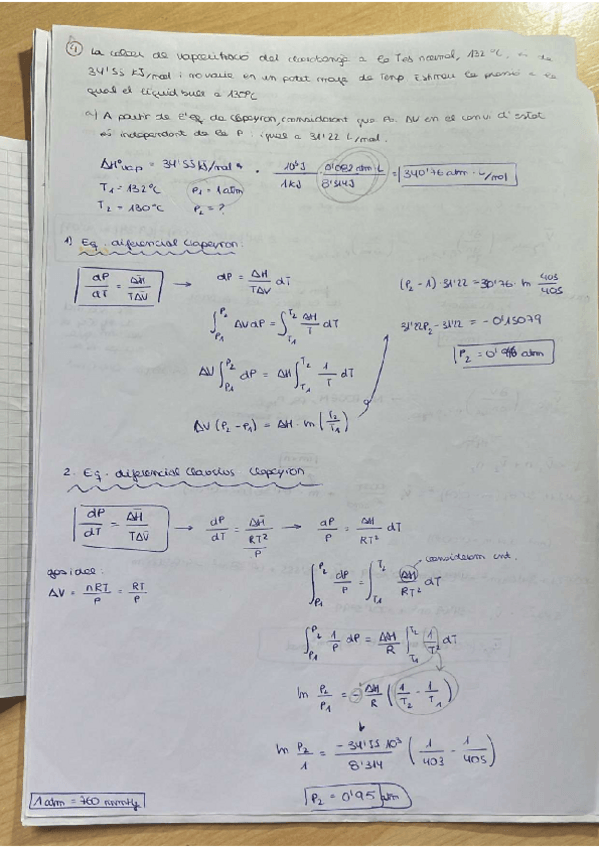 ④ La calor de vaporització del clorobenzè a la T es normal, 132°C, és de
34'55 KJ/mol i no varia en un petit marge de Temp. Estimeu la pressió a la
qual el líquid bull a 130°C
a) A partir de l'eq. de Clapeyron, considerant que ΔV en el canvi d'estat
és independent de la P i igual a 31'22 L/mol.
ΔH°vap = 34'55 kJ/mol · 10³J / 1kJ · 0'082 atm·L / 8'314J = 340'76 atm·L/mol
T₁ = 132°C P₁ = 1 atm
T₂ = 130°C P₂ = ?
1) Eq. diferencial Clapeyron:
dP/dT = ΔH̄/TΔV̄ → dP = ΔH̄/TΔV dT
∫P₁P₂ ΔV dP = ∫T₁T₂ ΔH/T dT
ΔV ∫P₁P₂ dP = ΔH ∫T₁T₂ 1/T dT
ΔV (P₂ - P₁) = ΔH · ln (T₂/T₁)
(P₂ - 1) · 31'22 = 30'76 · ln 403/405
31'22P₂ - 31'22 = - 0'15079
P₂ = 0'9 atm
2. Eq. diferencial Clausius Clapeyron
dP/dT = ΔH̄/TΔV̄ → dP/dT = ΔH̄/(RT²/P) → dP/P = ΔH/RT² dT
gas ideal:
ΔV = nRT/P = RT/P
considerem cnt.
∫P₁P₂ dP/P = ∫T₁T₂ ΔH/RT² dT
∫P₁P₂ 1/P dP = ΔH/R ∫T₁T₂ 1/T² dT
ln P₂/P₁ = - ΔH/R (1/T₂ - 1/T₁)
ln P₂/1 = -34'55 10³/8'314 (1/403 - 1/405)
P₂ = 0'95 atm
1 atm = 760 mmHg